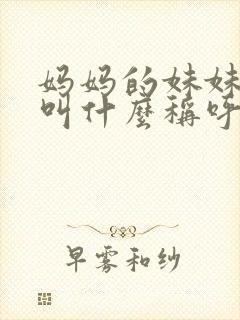 妈妈的妹妹
叫什麼稱呼
早雾和纱